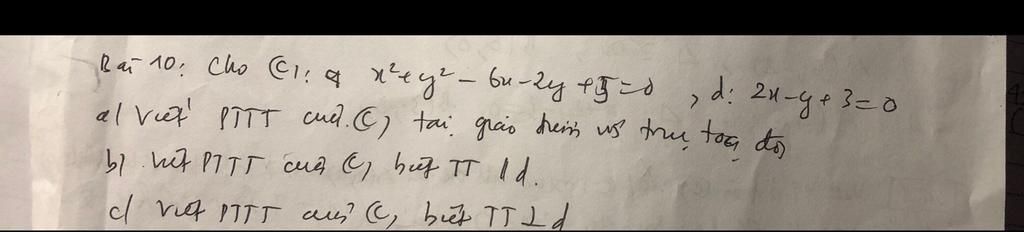 Bài 10: Cho (C): x² + y² - 6x - 2y + 5 = 0, d: 2x - y + 3 = 0
a) Viết PTTT của (C) tại giao điểm với trục toạ độ
b) Viết PTTT của (C) biết TT // d.
c) Viết PTTT của (C) biết TT ⊥ d